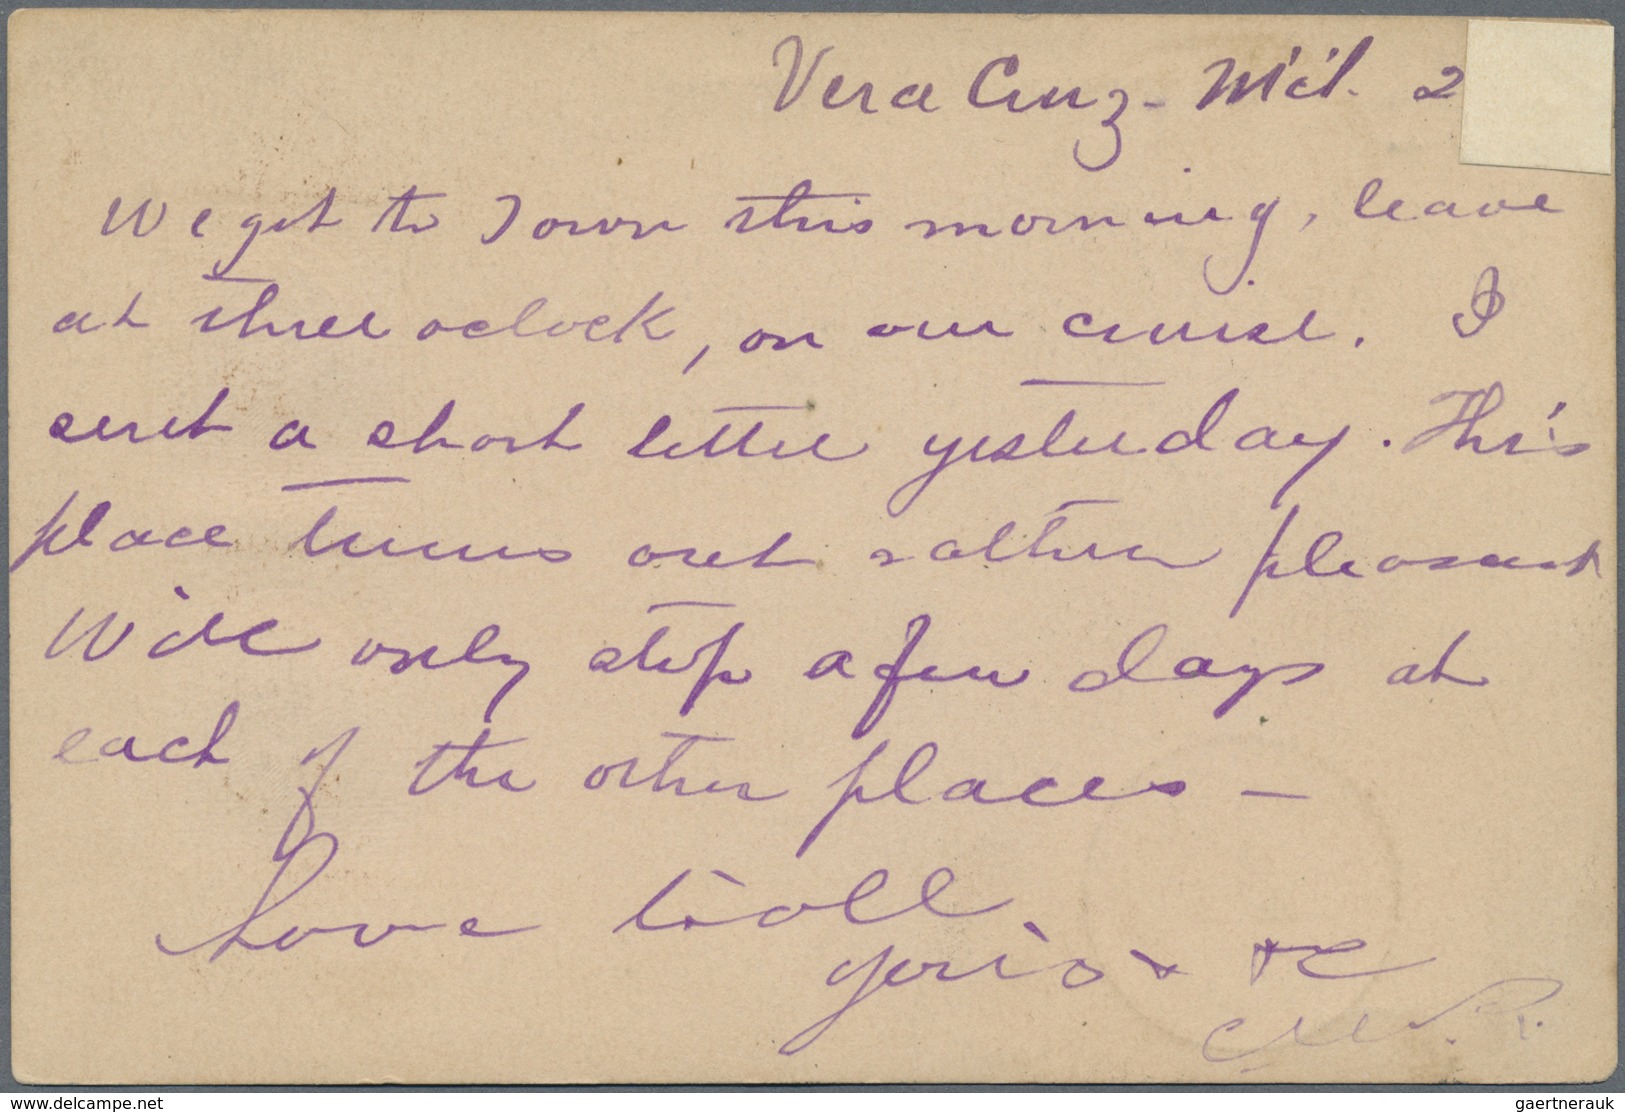 Vera Cruz - Mch. 2
We got to Town this morning, leave
at three oclock, on our cruise. I
sent a short letter yesterday. This
place turns out rather pleasant
Will only stop a few days at
each of the other places -
Love to all.
Yours &c
www.delcampe.net
gaertnerauk